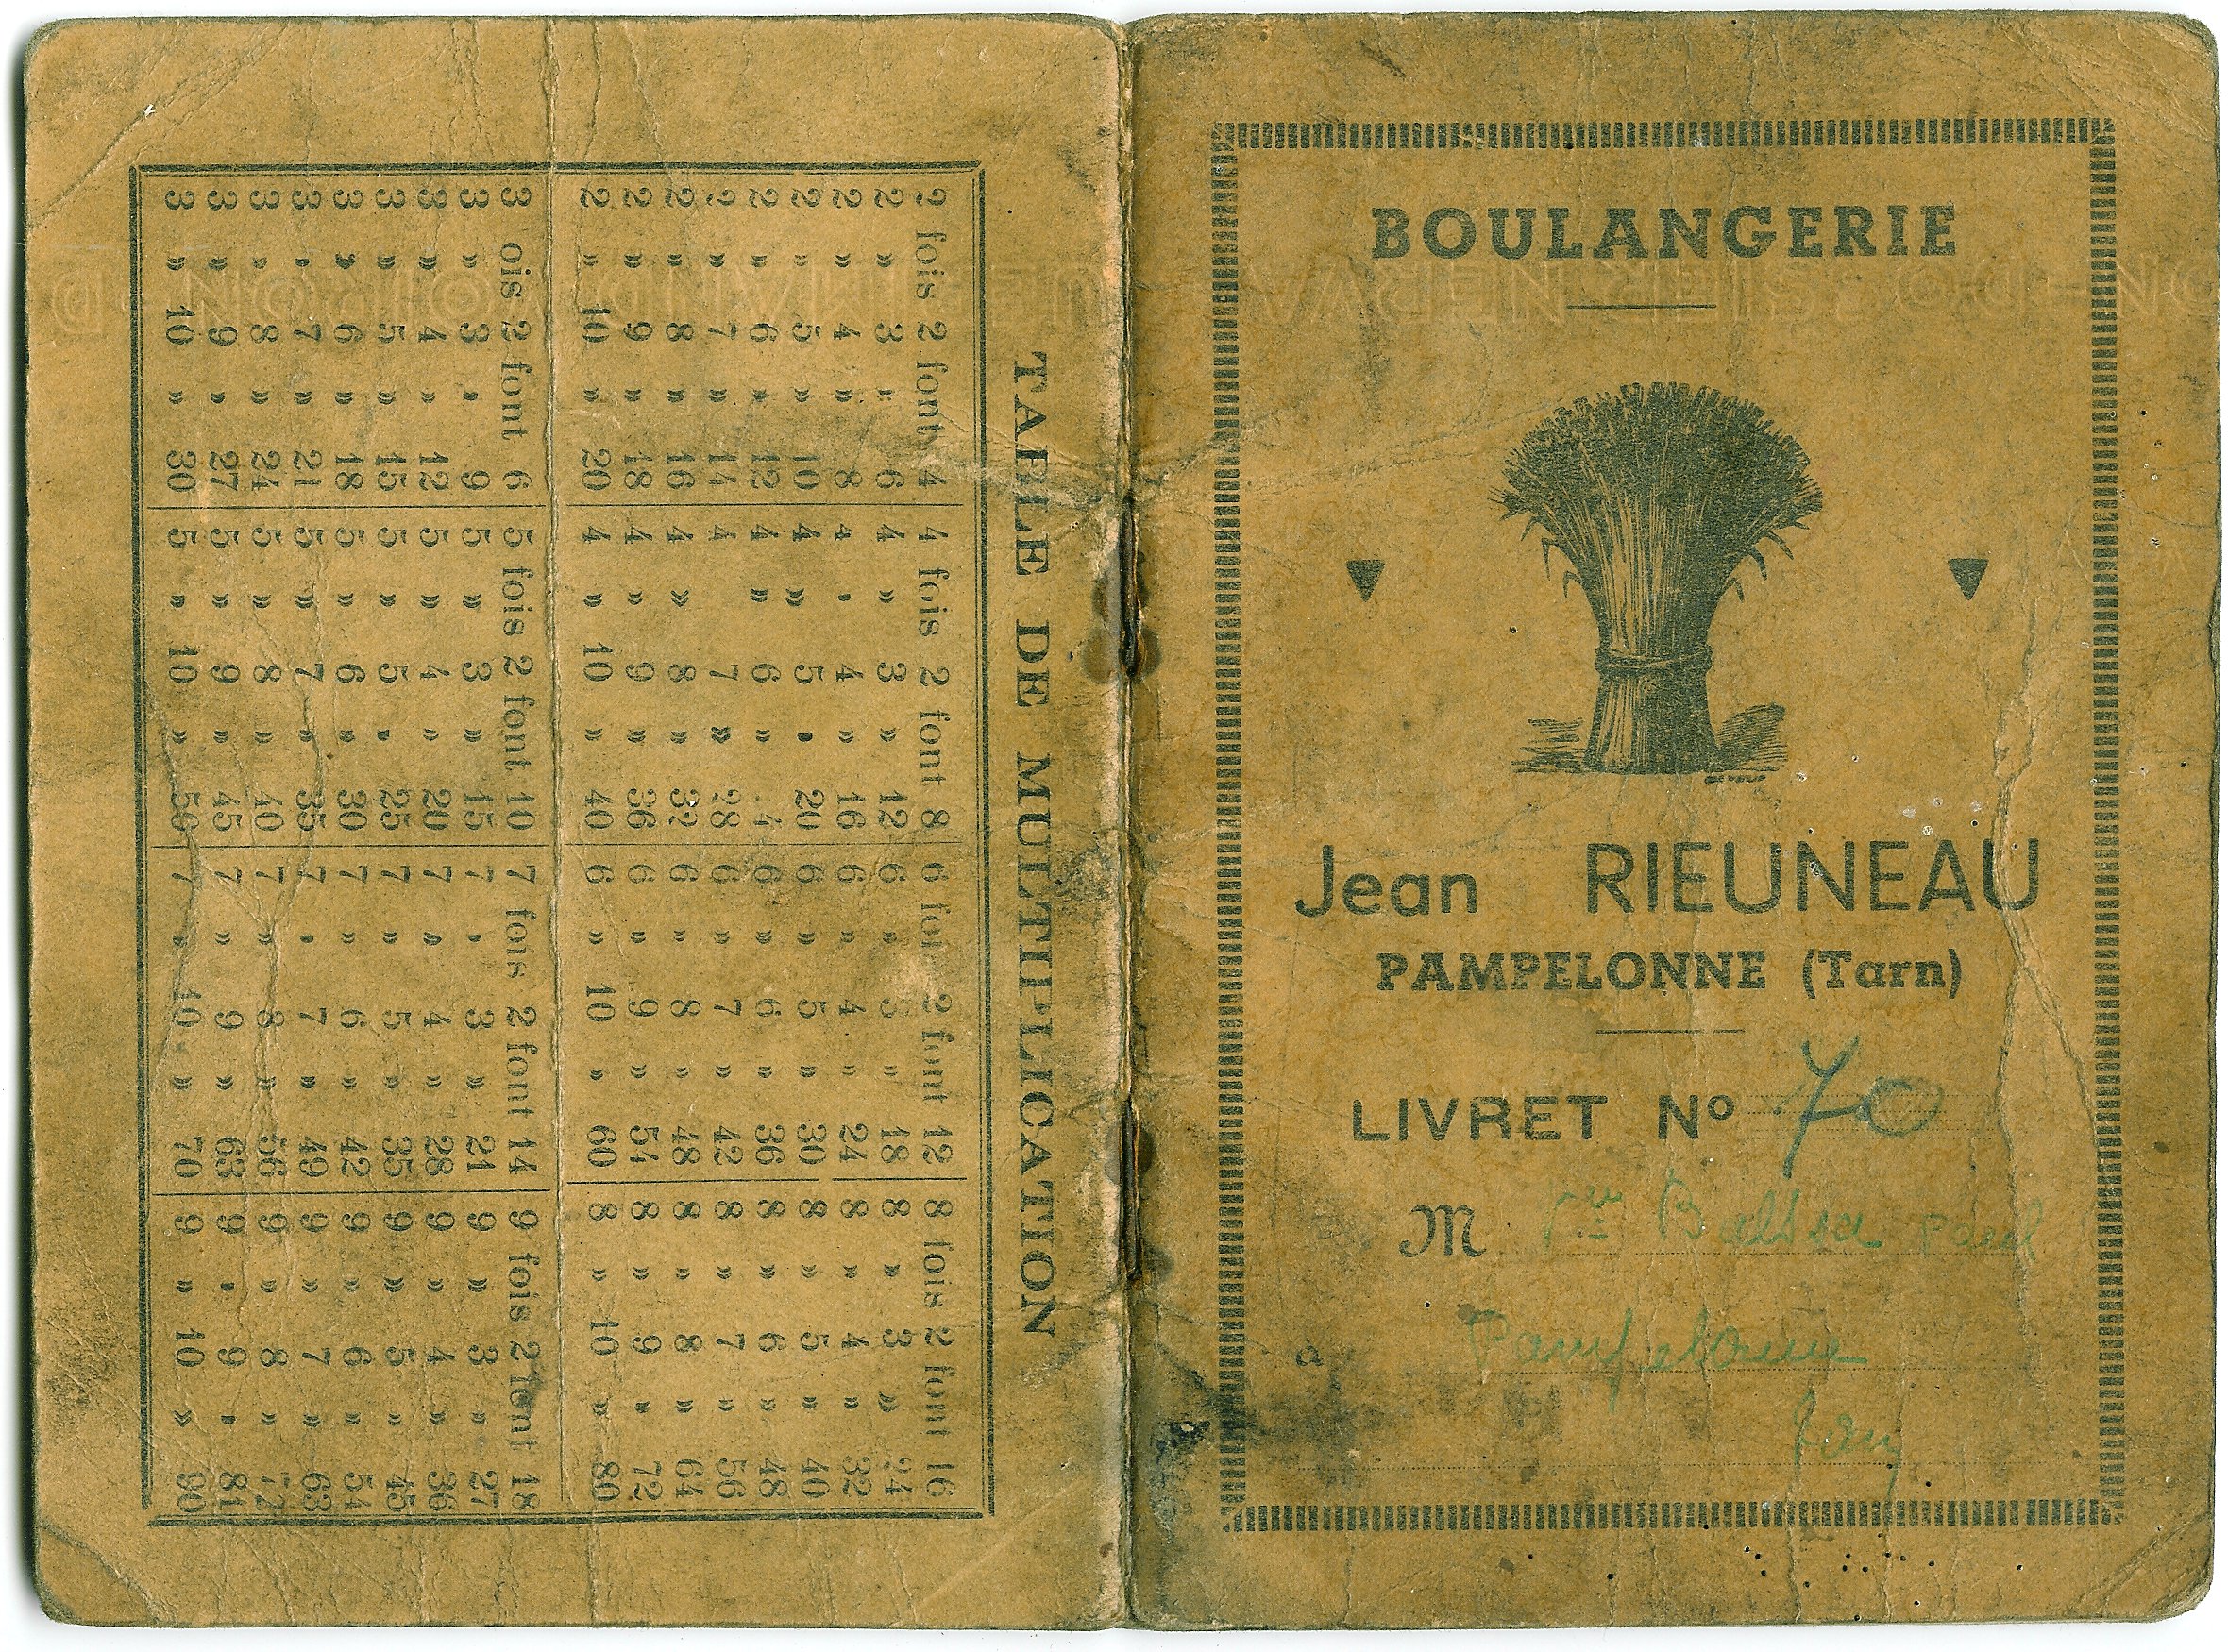 TABLE DE MULTIPLICATION
2 fois 2 font 4 4 fois 2 font 8 6 fois 2 font 12 8 fois 2 font 16
2 » 3 » 6 4 » 3 » 12 6 » 3 » 18 8 » 3 » 24
2 » 4 » 8 4 » 4 » 16 6 » 4 » 24 8 » 4 » 32
2 » 5 » 10 4 » 5 » 20 6 » 5 » 30 8 » 5 » 40
2 » 6 » 12 4 » 6 » 6 » 6 » 36 8 » 6 » 48
2 » 7 » 14 4 » 7 » 28 6 » 7 » 42 8 » 7 » 56
2 » 8 » 16 4 » 8 » 32 6 » 8 » 48 8 » 8 » 64
2 » 9 » 18 4 » 9 » 36 6 » 9 » 54 8 » 9 » 72
2 » 10 » 20 4 » 10 » 40 6 » 10 » 60 8 » 10 » 80
3 ois 2 font 6 5 fois 2 font 10 7 fois 2 font 14 9 fois 2 font 18
3 » 3 » 9 5 » 3 » 15 7 » 3 » 21 9 » 3 » 27
3 » 4 » 12 5 » 4 » 20 7 » 4 » 28 9 » 4 » 36
3 » 5 » 15 5 » 5 » 25 7 » 5 » 35 9 » 5 » 45
3 » 6 » 18 5 » 6 » 30 7 » 6 » 42 9 » 6 » 54
3 » 7 » 21 5 » 7 » 35 7 » 7 » 49 9 » 7 » 63
3 » 8 » 24 5 » 8 » 40 7 » 8 » 56 9 » 8 » 72
3 » 9 » 27 5 » 9 » 45 7 » 9 » 63 9 » 9 » 81
3 » 10 » 30 5 » 10 » 50 7 » 10 » 70 9 » 10 » 90
BOULANGERIE
Jean RIEUNEAU
PAMPELONNE (Tarn)
LIVRET Nº 70
M Paul
a Pampelonne
Tarn